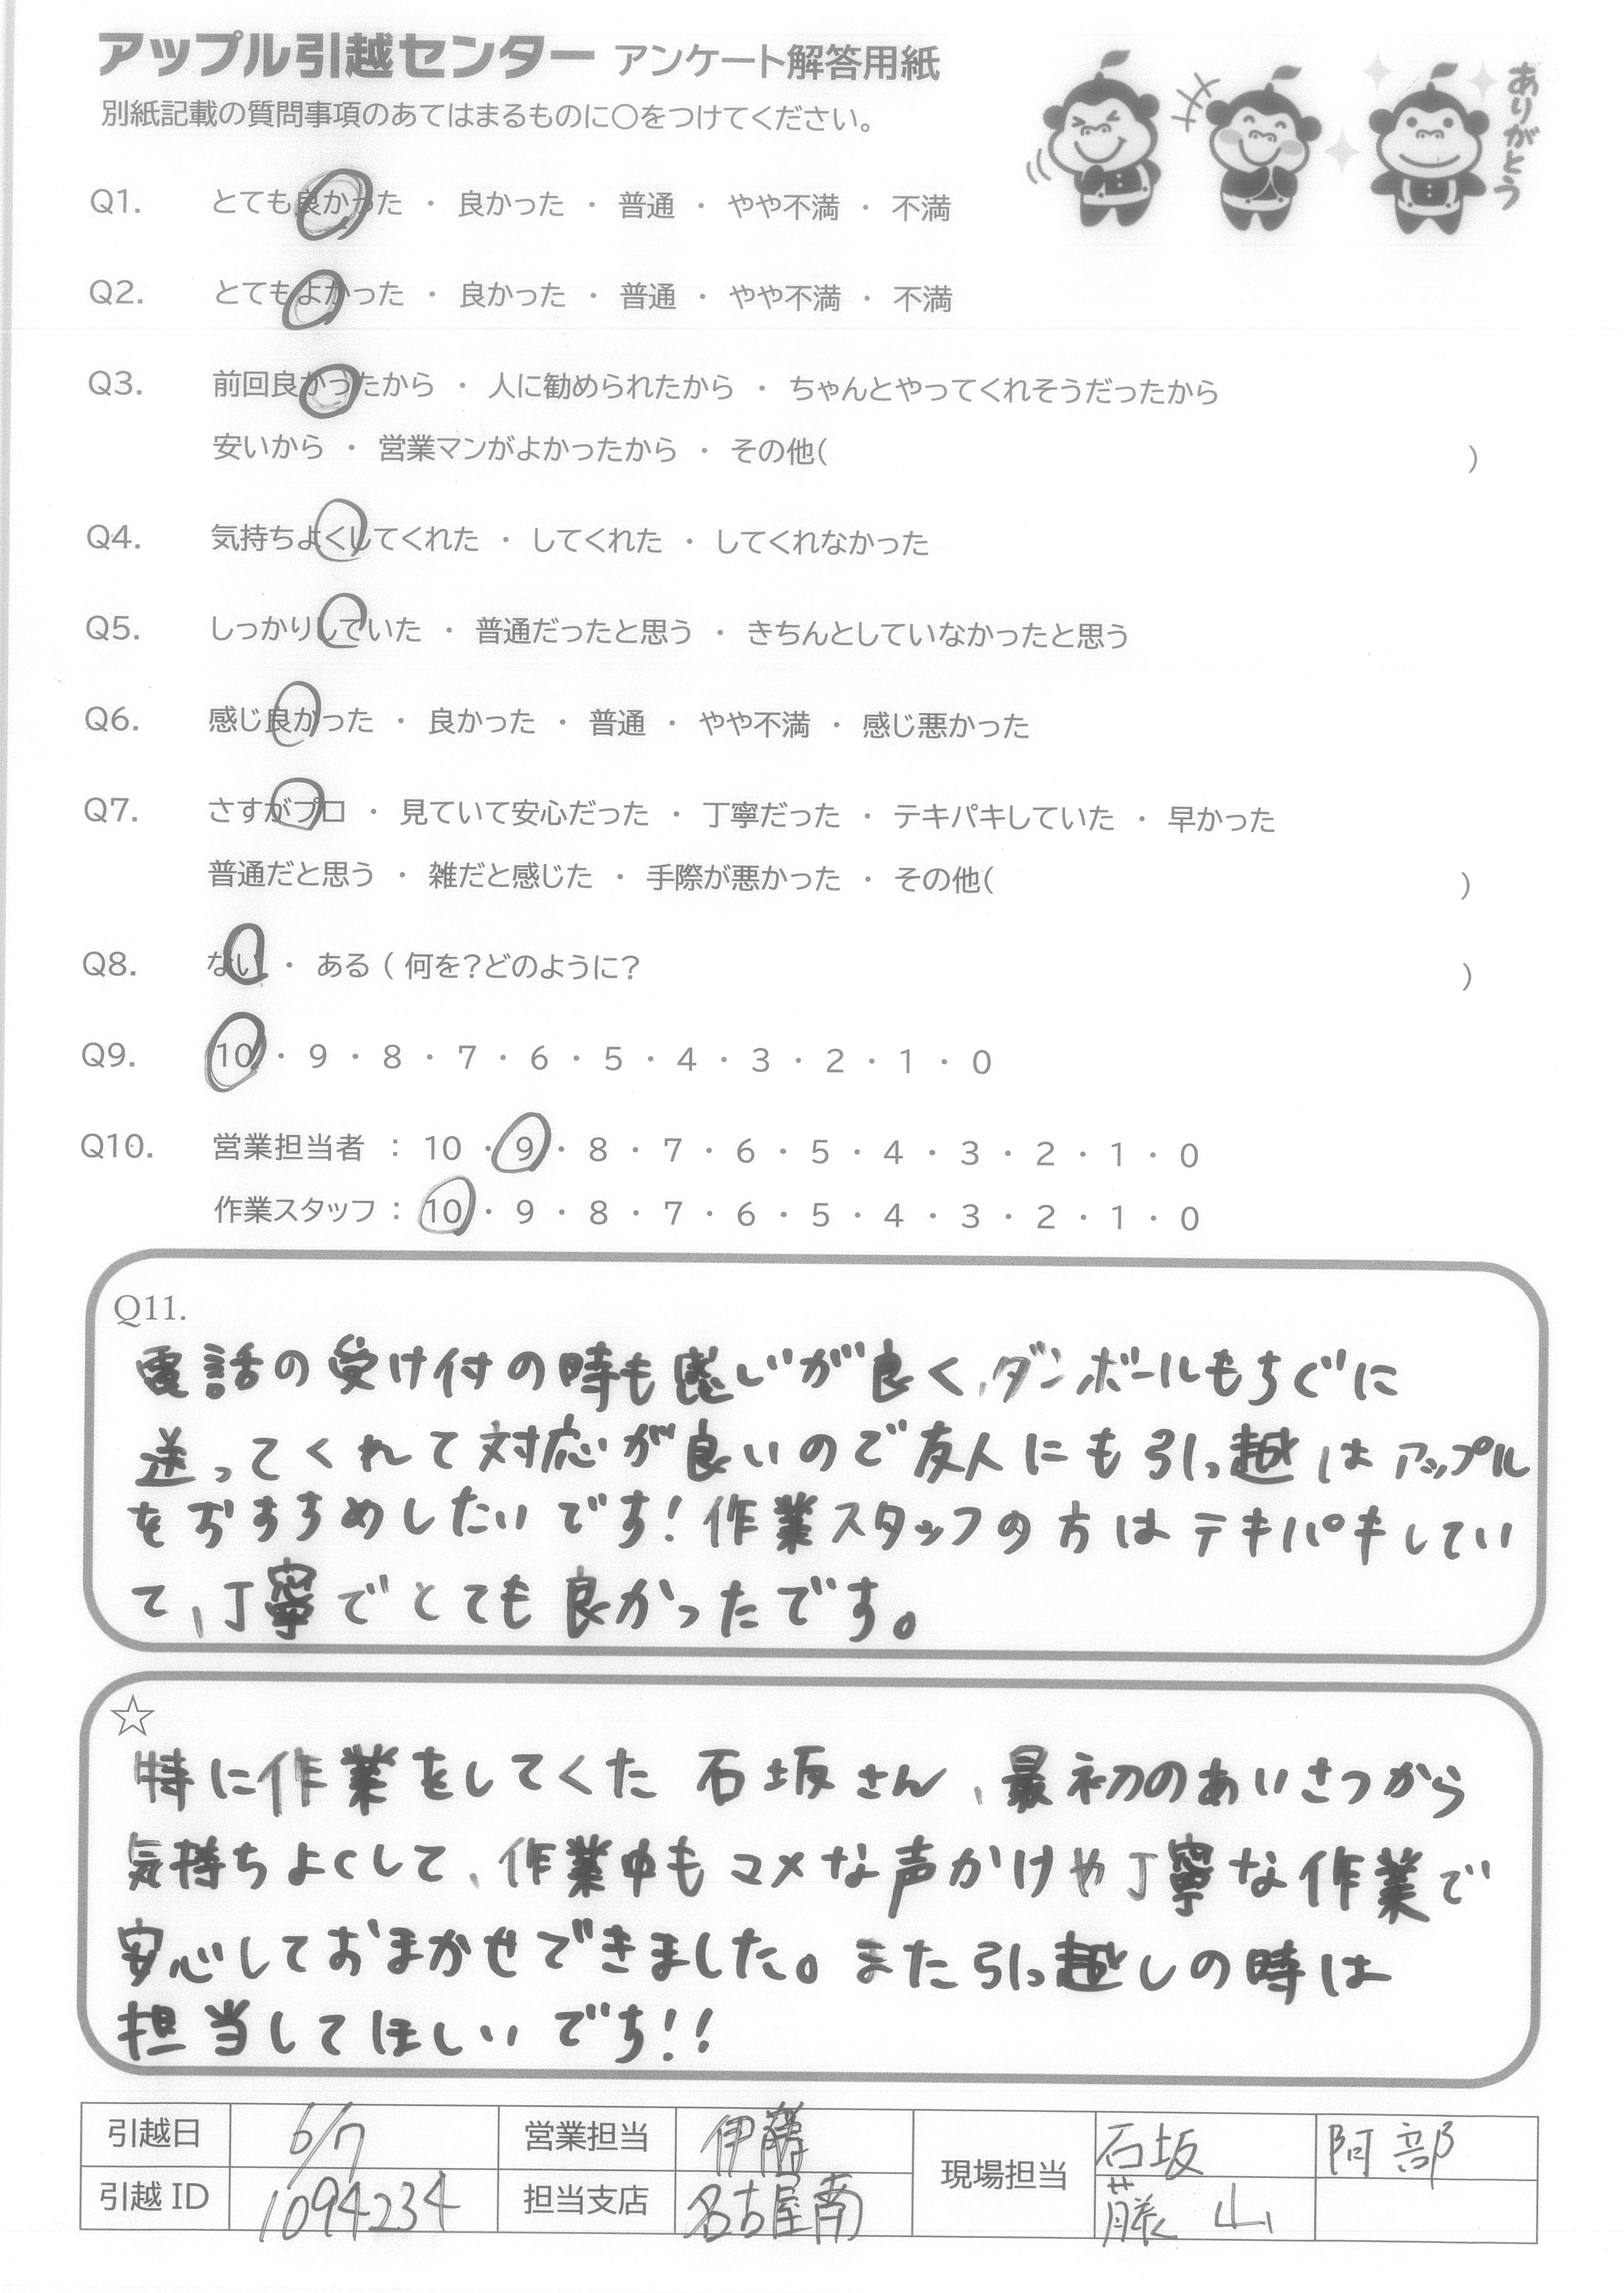 アップル引越センター アンケート解答用紙
ありがとう
別紙記載の質問事項のあてはまるものに〇をつけてください。
Q1. とても良かった ・ 良かった ・ 普通 ・ やや不満 ・ 不満
Q2. とてもよかった ・ 良かった ・ 普通 ・ やや不満 ・ 不満
Q3. 前回良かったから ・ 人に勧められたから ・ ちゃんとやってくれそうだったから
安いから ・ 営業マンがよかったから ・ その他( )
Q4. 気持ちよくしてくれた ・ してくれた ・ してくれなかった
Q5. しっかりしていた ・ 普通だったと思う ・ きちんとしていなかったと思う
Q6. 感じ良かった ・ 良かった ・ 普通 ・ やや不満 ・ 感じ悪かった
Q7. さすがプロ ・ 見ていて安心だった ・ 丁寧だった ・ テキパキしていた ・ 早かった
普通だと思う ・ 雑だと感じた ・ 手際が悪かった ・ その他( )
Q8. ない ・ ある ( 何を?どのように? )
Q9. 10 ・ 9 ・ 8 ・ 7 ・ 6 ・ 5 ・ 4 ・ 3 ・ 2 ・ 1 ・ 0
Q10. 営業担当者 : 10 ・ 9 ・ 8 ・ 7 ・ 6 ・ 5 ・ 4 ・ 3 ・ 2 ・ 1 ・ 0
作業スタッフ : 10 ・ 9 ・ 8 ・ 7 ・ 6 ・ 5 ・ 4 ・ 3 ・ 2 ・ 1 ・ 0
Q11.
電話の受け付の時も感じが良く、ダンボールもすぐに
送ってくれて対応が良いので友人にも引っ越はアップル
をおすすめしたいです!作業スタッフの方はテキパキしてい
て、丁寧でとても良かったです。
☆
特に作業をしてくた 石坂さん、最初のあいさつから
気持ちよくして、作業中もマメな声かけや丁寧な作業で
安心しておまかせできました。また引っ越しの時は
担当してほしいです!!
引越日 6/7 営業担当 伊藤 現場担当 石坂 阿部
引越 ID 1094234 担当支店 名古屋南 藤山